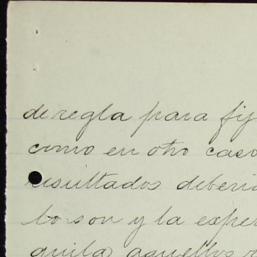 de regla para fij
como en otro caso
resultados deberia
lo son y la exper
quila aquellos